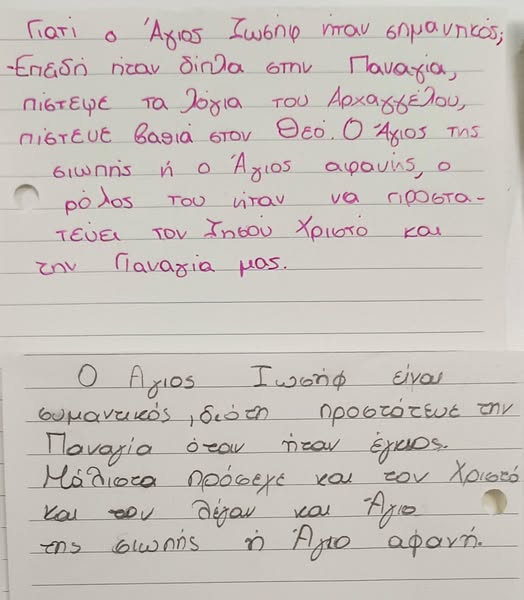 Γιατί ο Άγιος Ιωσήφ ήταν σημαντικός;
-Επειδή ήταν δίπλα στην Παναγία,
πίστεψε τα λόγια του Αρχαγγέλου,
πίστευε βαθιά στον Θεό. Ο Άγιος της
σιωπής ή ο Άγιος αφανής, ο
ρόλος του ήταν να προστα-
τεύει τον Ιησού Χριστό και
την Παναγία μας.
Ο Άγιος Ιωσήφ είναι
συμαντικός, διότη προστάτευε την
Παναγία όταν ήταν έγκιος.
Μάλιστα πρόσεχε και τον Χριστό
και τον λέγαν και Άγιο
της σιωπής ή Άγιο αφανή.